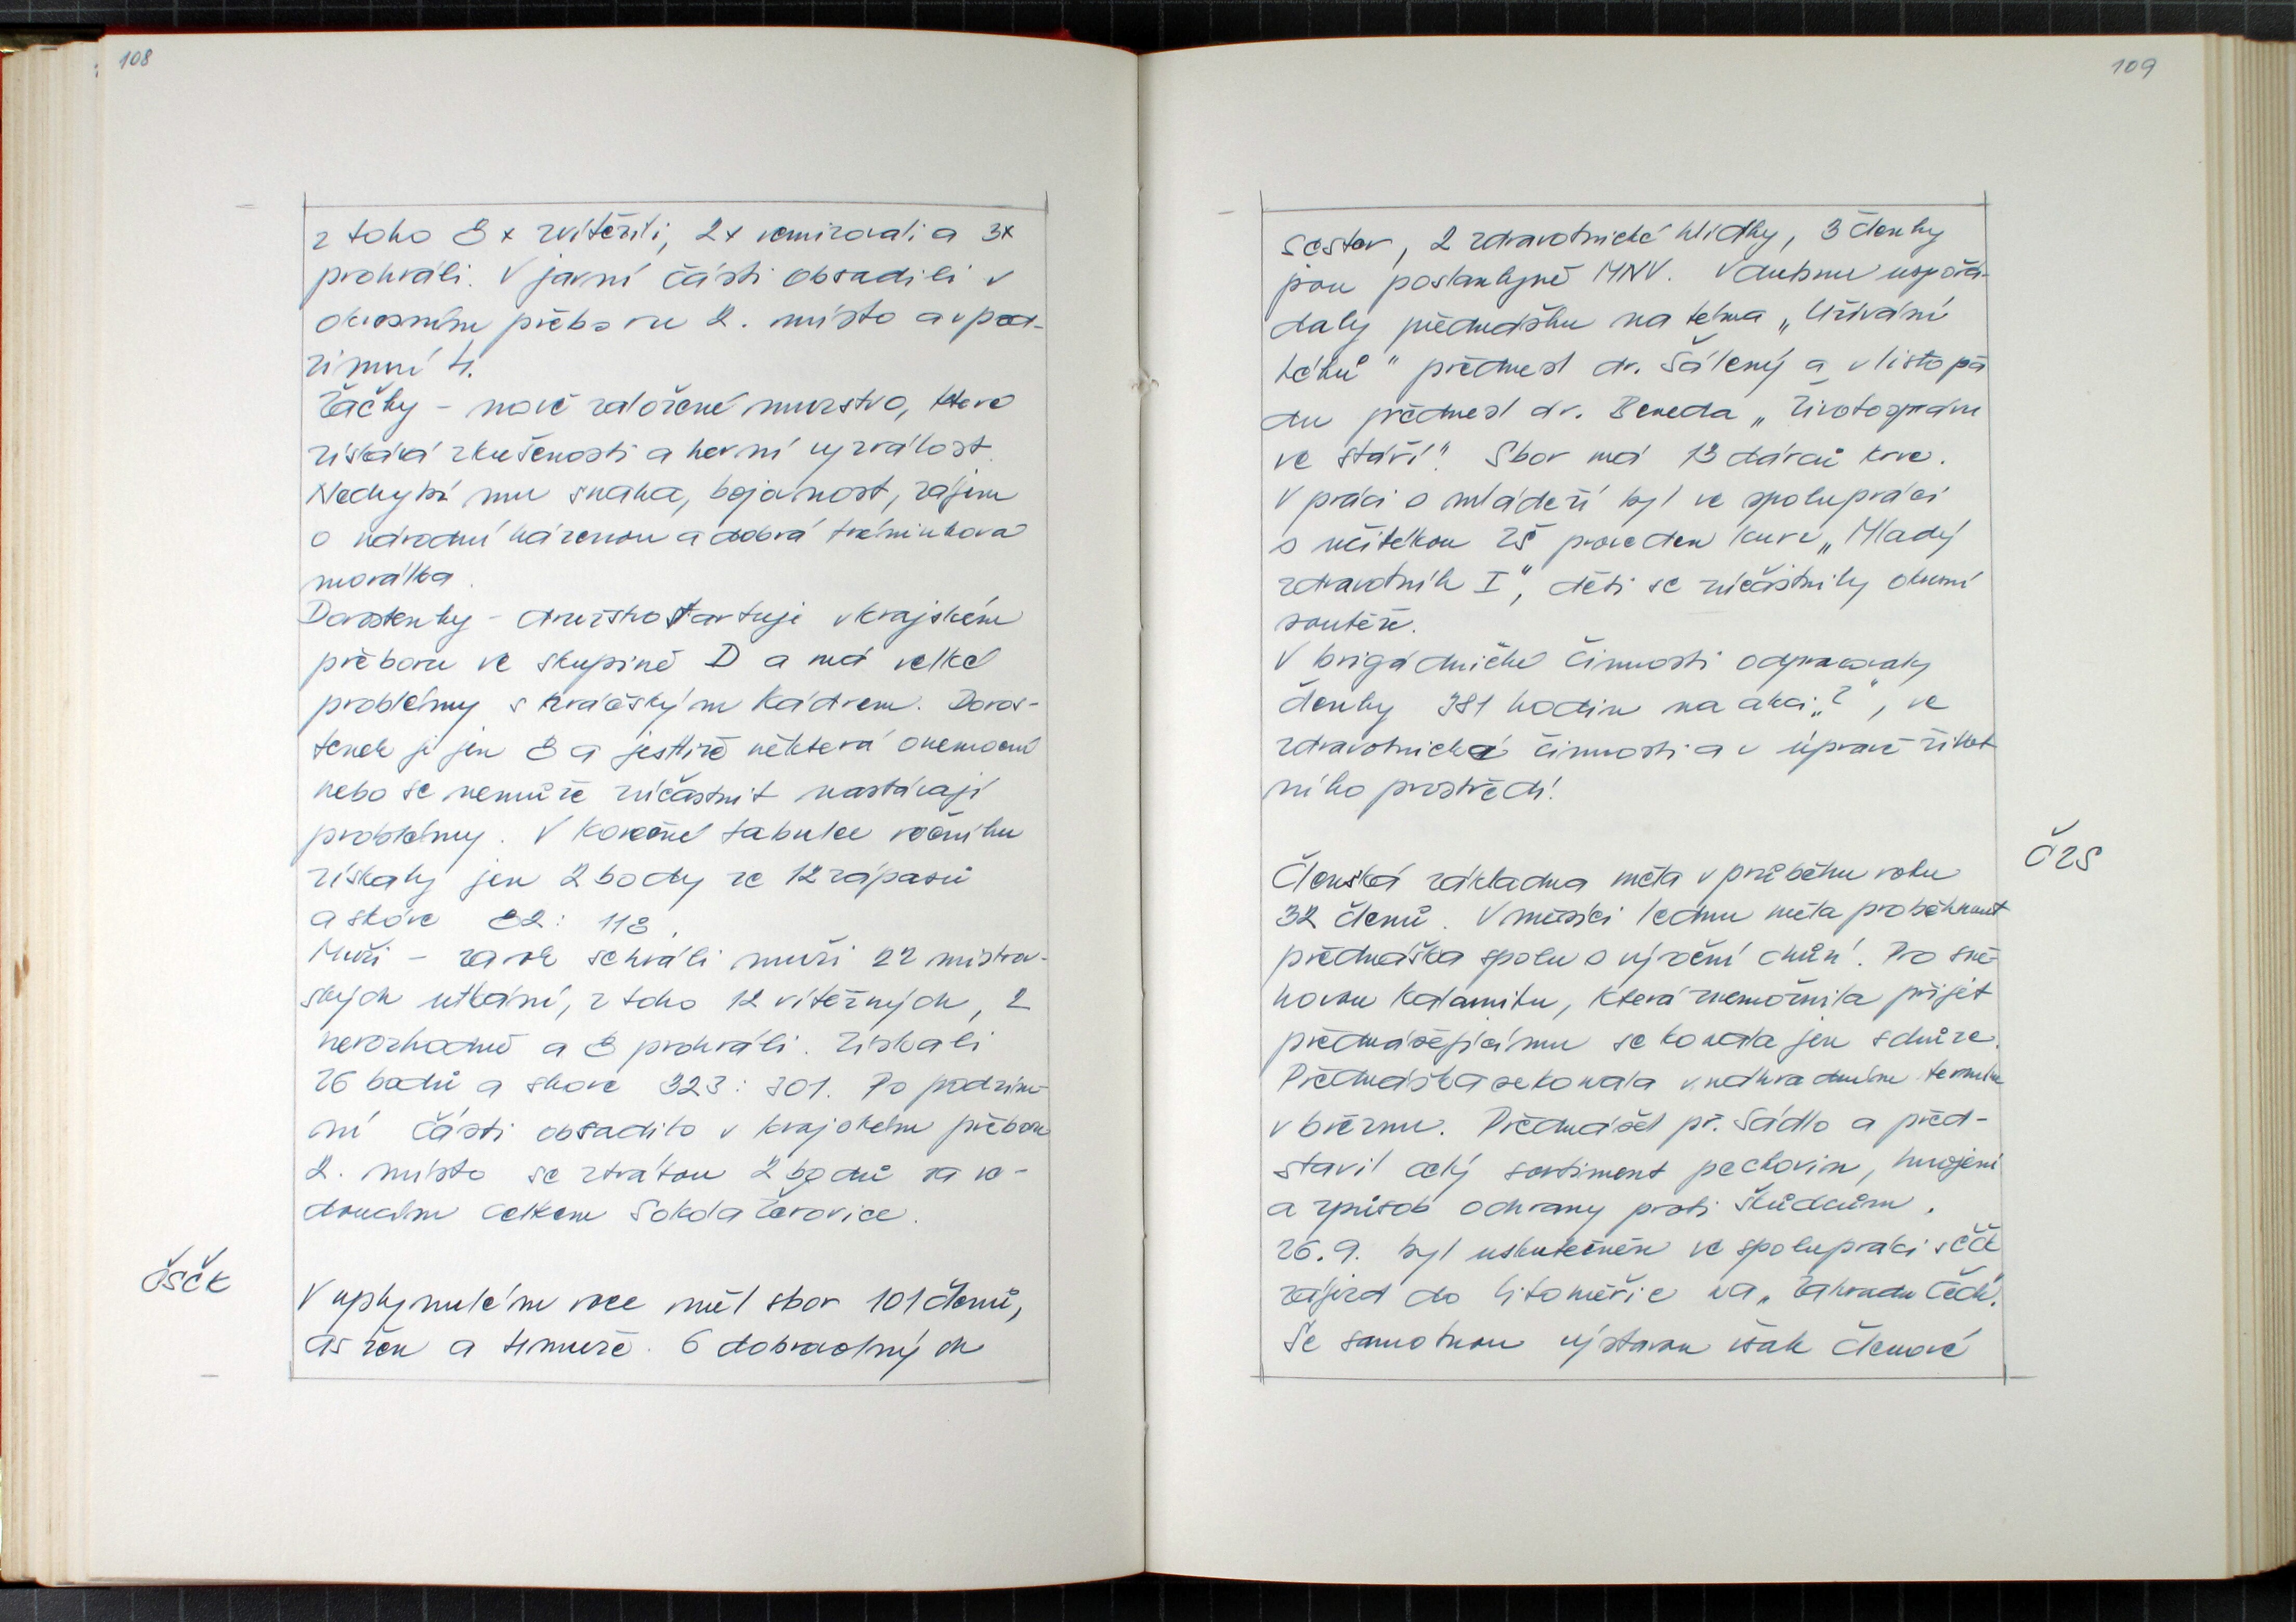 108
z toho 8 x zvítězili, 2x remizovali a 3x
prohráli. V jarní části obsadili v
okresním přeboru 2. místo a v pod-
zimní 4.
Žačky - nově založené mužstvo, které
získává zkušenosti a herní vyzrálost.
Nechybí mu snaha, bojovnost, zájem
o národní házenou a dobrá tréninková
morálka.
Dorostenky - družstvo startuje v krajském
přeboru ve skupině D a má velké
problémy s hráčským kádrem. Doros-
tenek je jen 8 a jestliže některá onemocní
nebo se nemůže zúčastnit nastávají
problémy. V konečné tabulce ročníku
získaly jen 2 body ze 12 zápasů
a skóre 82 : 118.
Muži - za rok sehráli muži 22 mistrov-
ských utkání, z toho 12 vítězných, 2
nerozhodně a 8 prohráli. Získali
26 bodů a skore 323 : 301. Po podzim-
ní části obsadilo v krajském přeboru
2. místo se ztrátou 2 bodů za ve-
doucím celkem Sokola Žerovice.
ČSČK
V uplynulém roce měl sbor 101 členů,
žen a 4 muže. 6 dobrovolných
109
sester, 2 zdravotnické hlídky, 3 členky
jsou poslankyně MNV. V dubnu uspořá-
daly přednášku na téma „Užívání
léků" přednesl dr. Šálený a v listopa
du přednesl dr. Beneda „Životospráva
ve stáří". Sbor má 13 dárců krve.
V práci s mládeží byl ve spolupráci
s učitelkou ZŠ proveden kurz „Mladý
zdravotník I", děti se zúčastnily okresní
soutěže.
V brigádnické činnosti odpracovaly
členky 381 hodin na akci „Z", ve
zdravotnické činnosti a v úpravě život
ního prostředí.
ČZS
Členská základna měla v průběhu roku
32 členů. V měsíci lednu měla proběhnout
přednáška spolu s výroční chůzí. Pro sně-
hovou kalamitu, která znemožnila přijet
přednášejícímu se konala jen schůze.
Přednáška se konala v náhradním termínu
v březnu. Přednášel př. Sádlo a před-
stavil celý sortiment pěchovin, hnojení
a způsob ochrany proti škůdcům.
26.9. byl uskutečněn ve spolupráci s ČČK
zájezd do Litoměřic na „Zahradu Čech".
Se samotnou výstavou však členové